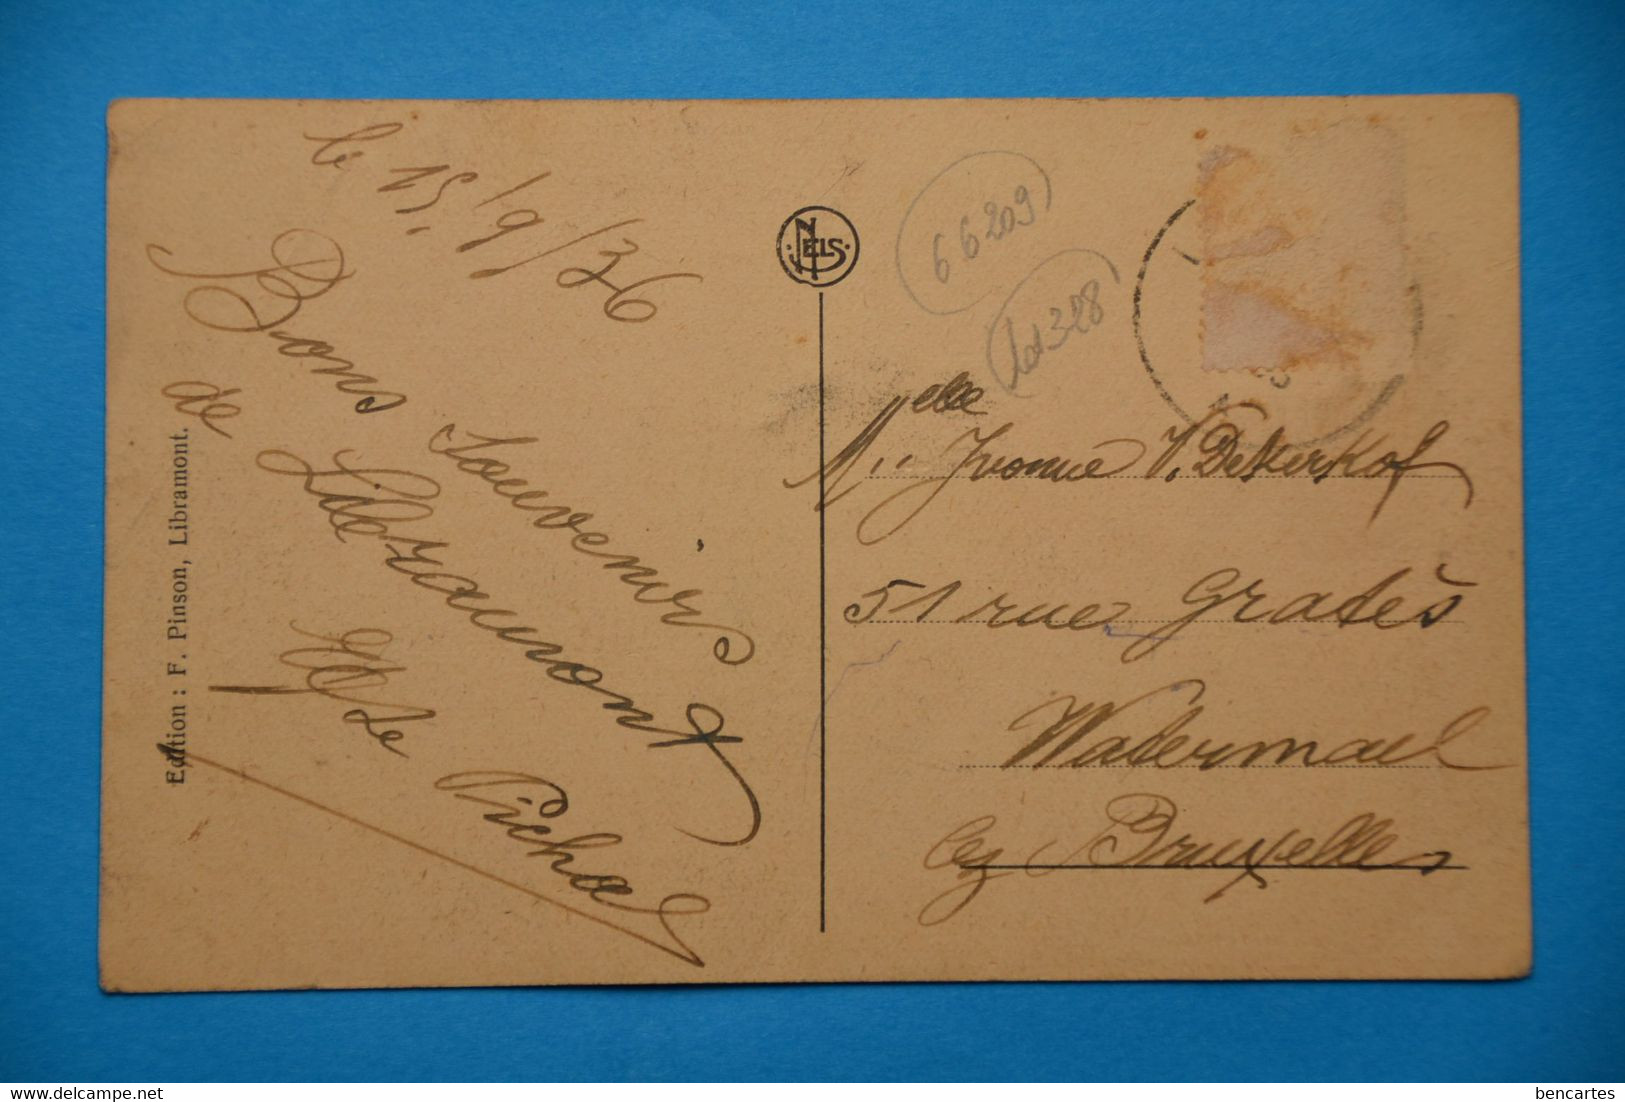 le 15/9/36
Bons Souvenirs
de Libramont
Pichal
Edition : F. Pinson, Libramont.
NELS
66209
Lot 328
Melle Yvonne V. DeKerKof
51 rue Gratès
Watermael
lez Bruxelles
bencartes